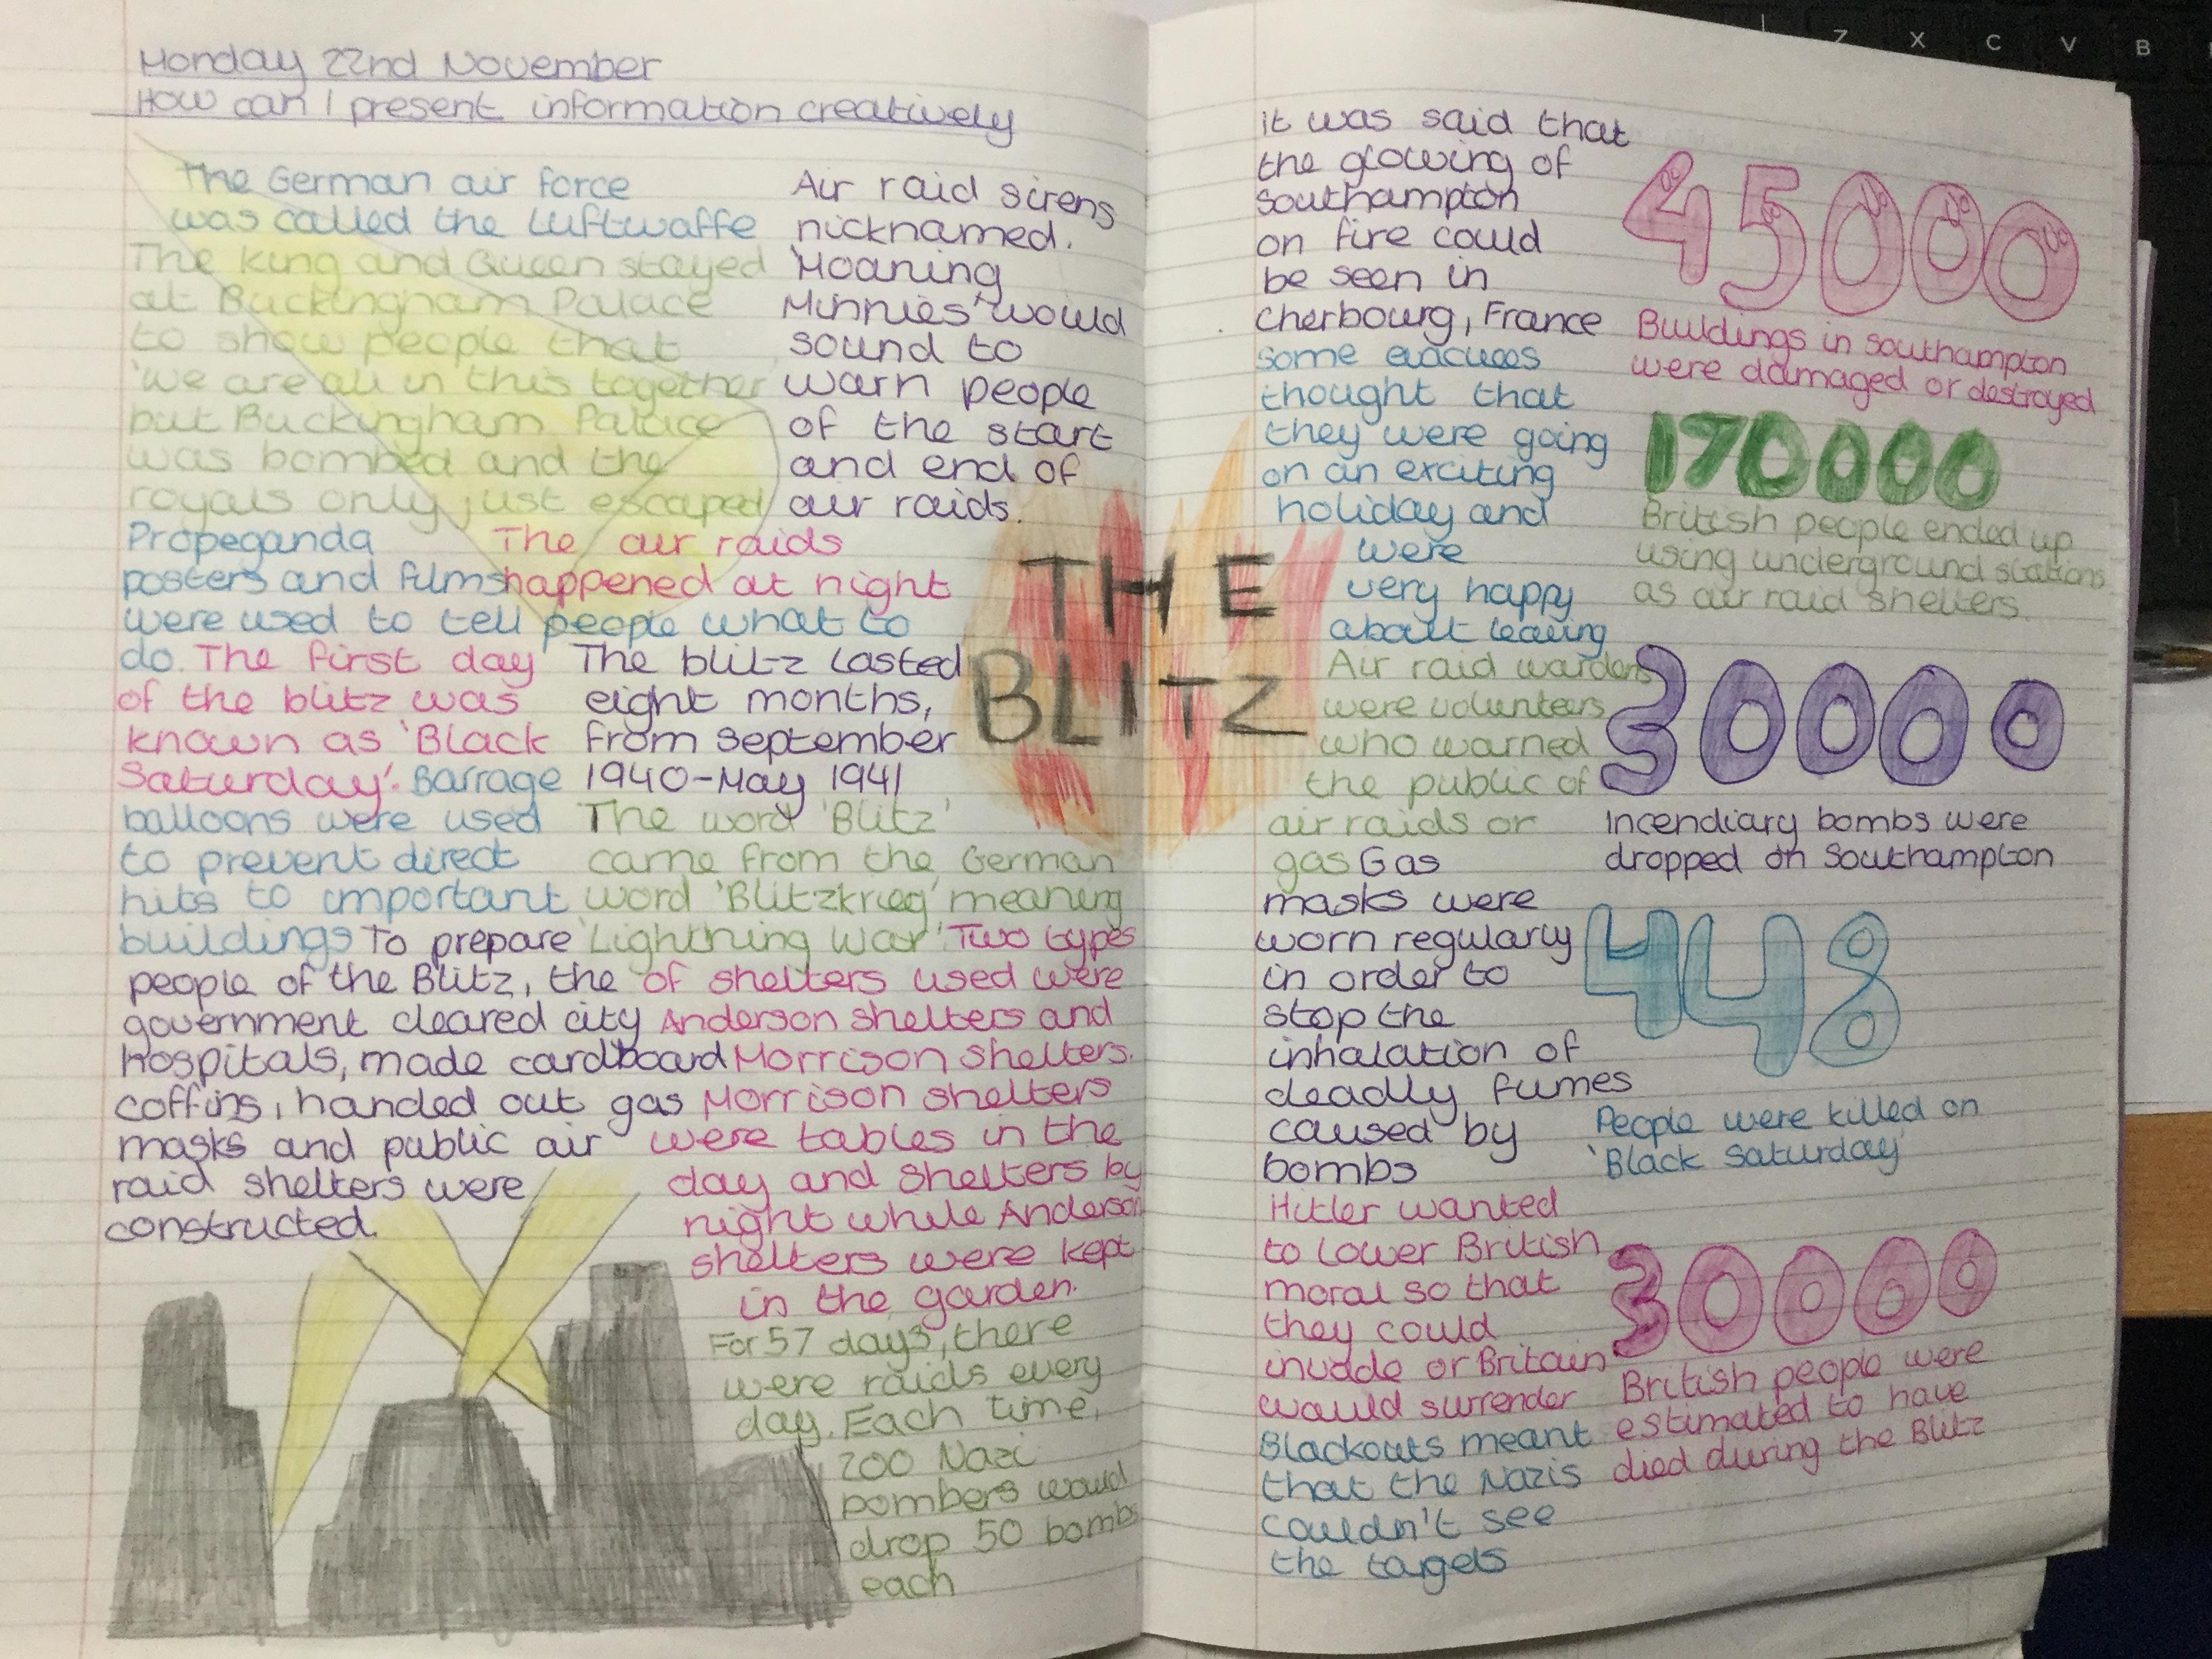 Monday 22nd November
How can I present information creatively
The German air force
was called the Luftwaffe
The King and Queen stayed
at Buckingham Palace
to show people that
'we are all in this together'
but Buckingham Palace
was bombed and the
royals only just escaped
Air raid sirens
nicknamed.
'Moaning
Minnies' would
sound to
warn people
of the start
and end of
air raids.
Propeganda
posters and films
were used to tell people what to
do.
The air raids
happened at night
The first day
of the blitz was
known as 'Black
Saturday'.
Barrage
balloons were used
to prevent direct
hits to important
buildings
The blitz lasted
eight months,
from September
1940-May 1941
The word 'Blitz'
came from the German
word 'Blitzkrieg' meaning
'Lightning War'.
To prepare
people of the Blitz, the
government cleared city
hospitals, made cardboard
coffins, handed out gas
masks and public air
raid shelters were
constructed.
Two types
of shelters used were
Anderson shelters and
Morrison shelters.
Morrison shelters
were tables in the
day and shelters by
night while Anderson
shelters were kept
in the garden.
For 57 days, there
were raids every
day. Each time,
200 Nazi
bombers would
drop 50 bombs
each
THE
BLITZ
it was said that
the glowing of
Southampton
on fire could
be seen in
Cherbourg, France
Some evacuees
thought that
they were going
on an exciting
holiday and
were
very happy
about leaving
Air raid wardens
were volunteers
who warned
the public of
air raids or
gas
Gas
masks were
worn regularly
in order to
stop the
inhalation of
deadly fumes
caused by
bombs
Hitler wanted
to lower British
moral so that
they could
invade or Britain
would surrender
Blackouts meant
that the Nazis
couldn't see
the targets
45000
Buildings in Southampton
were damaged or destroyed
170000
British people ended up
using underground stations
as air raid shelters.
30000
Incendiary bombs were
dropped on Southampton
448
People were killed on
'Black Saturday'
30000
British people were
estimated to have
died during the Blitz
Z X C V B